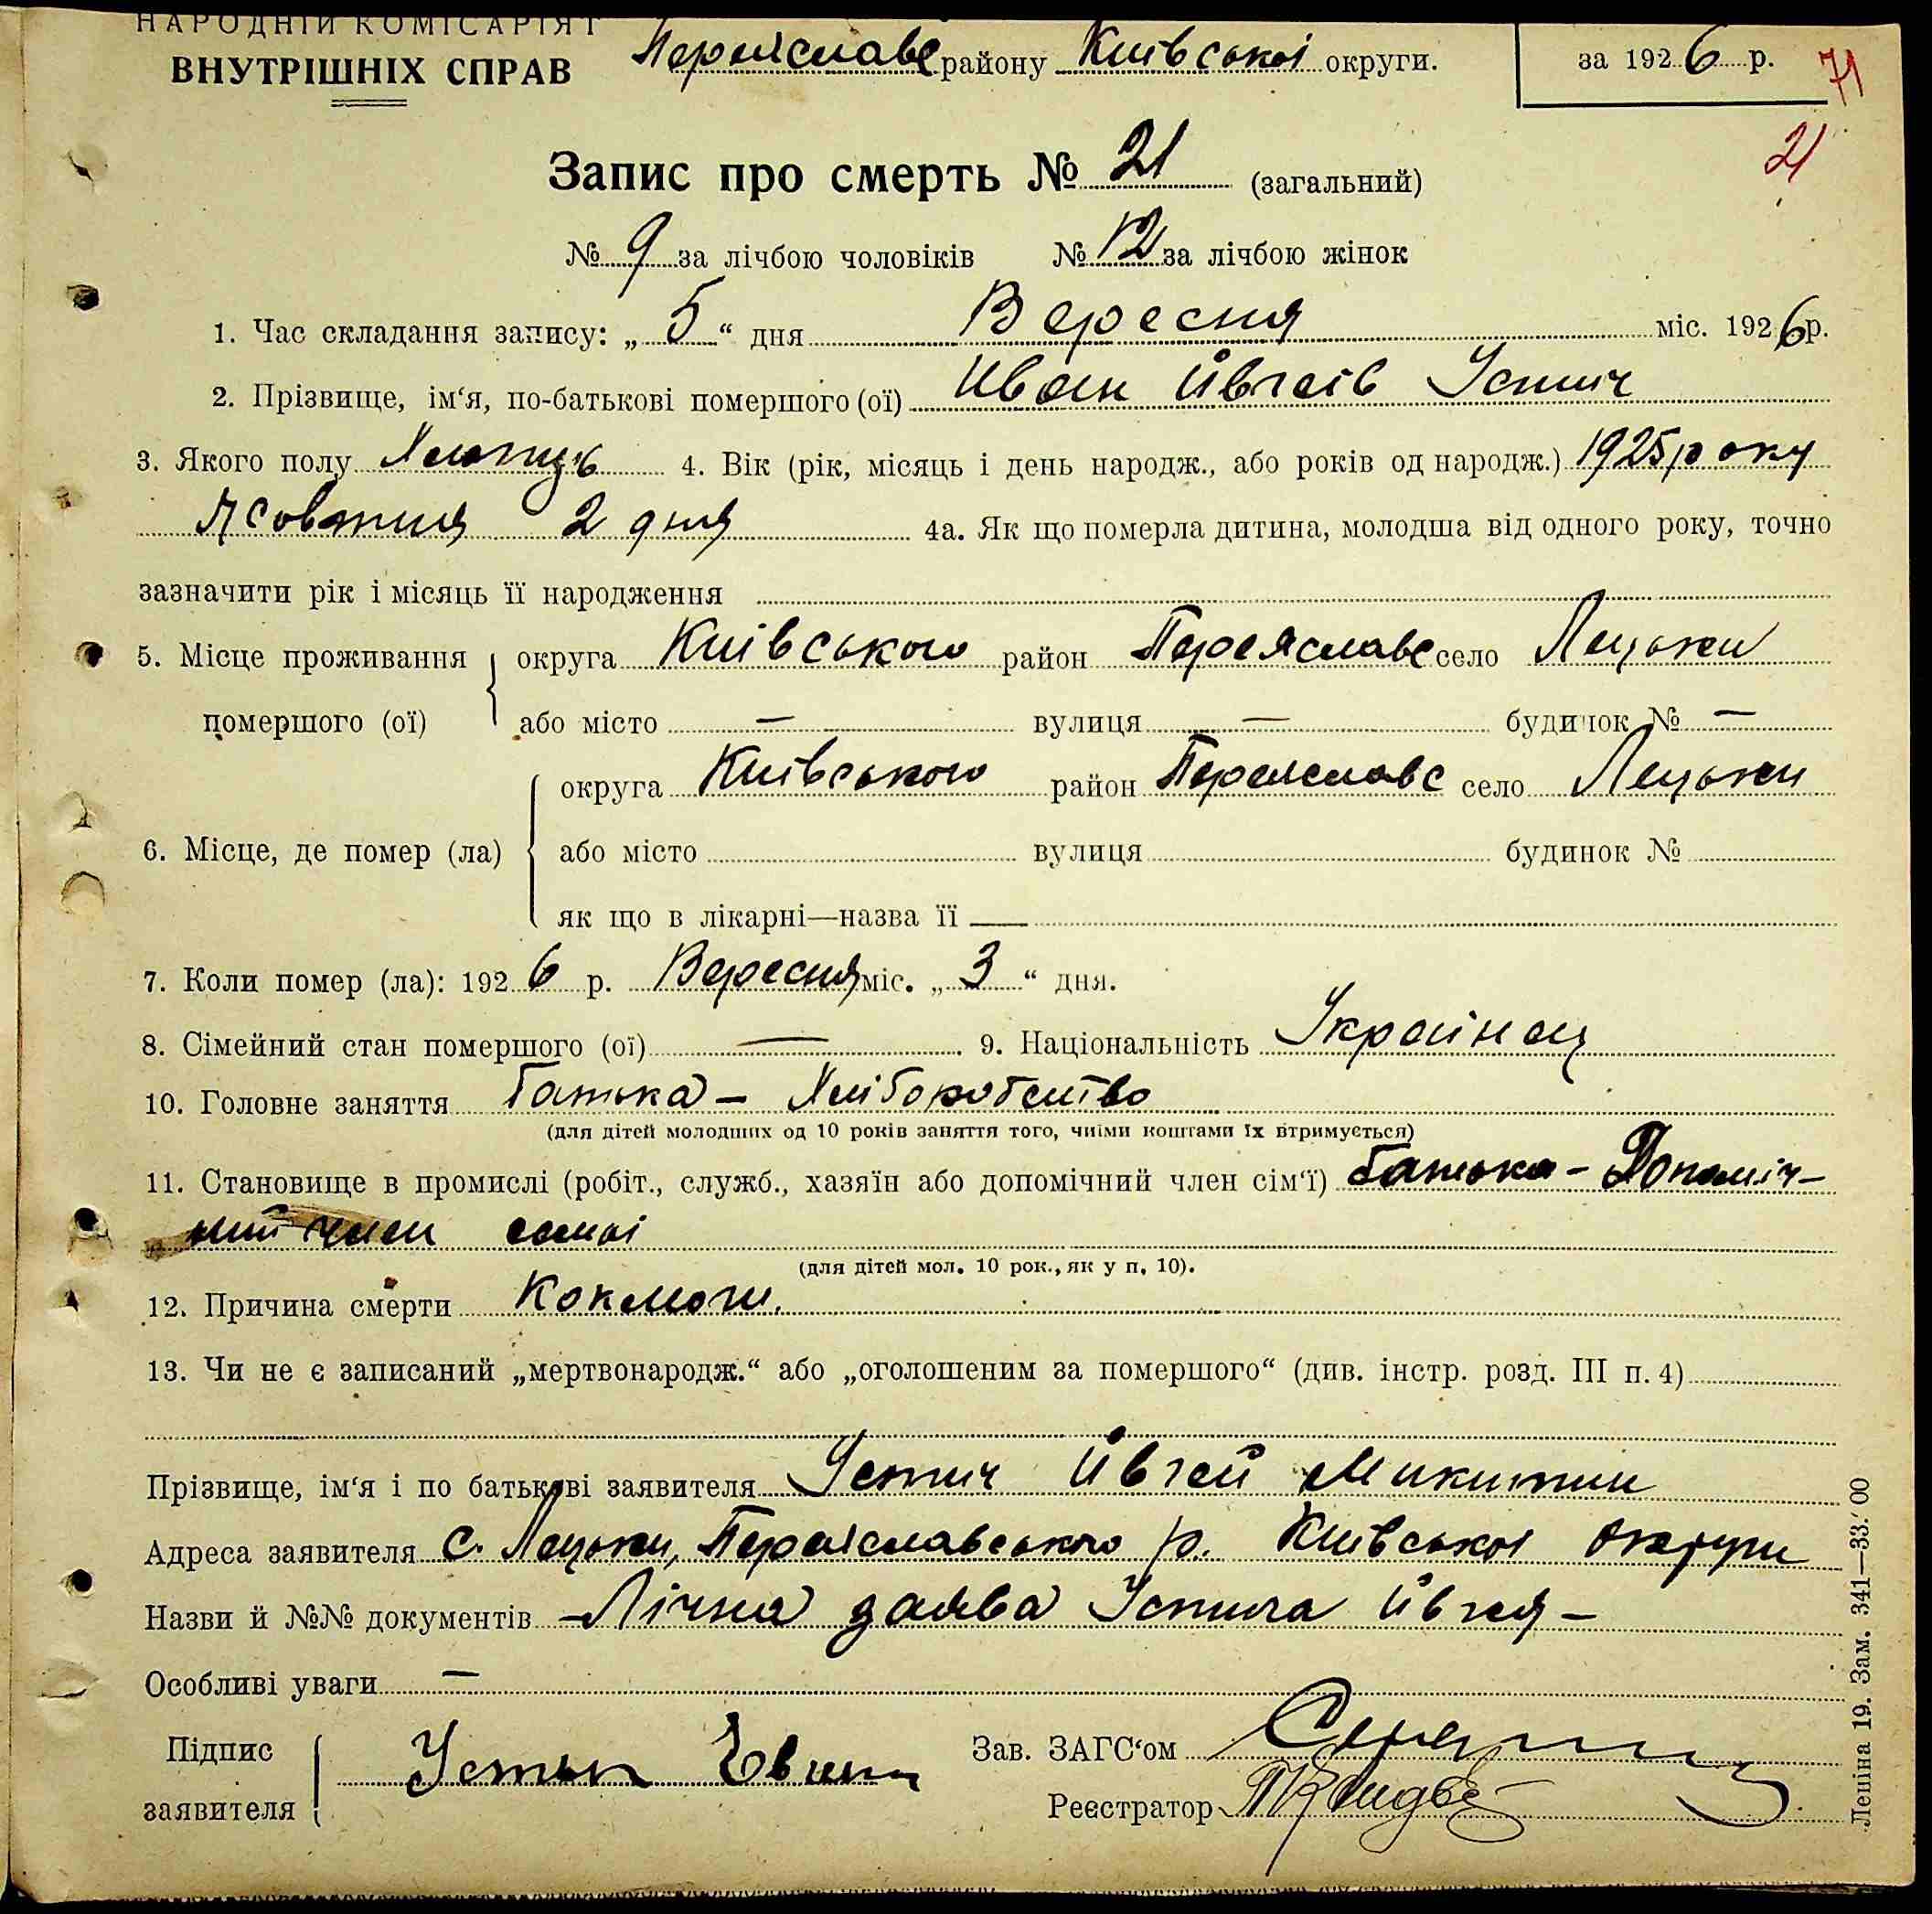 НАРОДНІЙ КОМІСАРІЯТ
ВНУТРІШНІХ СПРАВ
Переяславс району Київської округи.
за 1926 р.
71
21
Запис про смерть № 21 (загальний)
№ 9 за лічбою чоловіків № 12 за лічбою жінок
1. Час складання запису: „ 5 “ дня Вересня міс. 1926 р.
2. Прізвище, ім‘я, по-батькові помершого (ої) Иван Ивгеів Устич
3. Якого полу Хлопець 4. Вік (рік, місяць і день народж., або років од народж.) 1925 року
Жовтня 2 дня 4а. Як що померла дитина, молодша від одного року, точно
зазначити рік і місяць її народження
5. Місце проживання округа Київського район Переяславс село Лецьки
помершого (ої) або місто — вулиця — будинок № —
округа Київського район Переяславс село Лецьки
6. Місце, де помер (ла) або місто вулиця будинок №
як що в лікарні—назва її —
7. Коли помер (ла): 1926 р. Вересня міс. „ 3 “ дня.
8. Сімейний стан помершого (ої) — 9. Національність Українец
10. Головне заняття батька — Хліборобство
(для дітей молодших од 10 років заняття того, чиїми коштами їх втримується)
11. Становище в промислі (робіт., служб., хазяїн або допомічний член сім‘ї) батька - Допоміч-
ний член семьі
(для дітей мол. 10 рок., як у п. 10).
12. Причина смерти Коклюш.
13. Чи не є записаний „мертвонародж.“ або „оголошеним за помершого“ (див. інстр. розд. III п. 4)
Прізвище, ім‘я і по батькові заявителя Устич Ивгей Микитин
Адреса заявителя С. Лецьки, Переяславського р. Київської округи
Назви й №№ документів — Лічна заява Устича Ивгея —
Особливі уваги —
Підпис
заявителя
Зав. ЗАГС‘ом
Реєстратор
Леніна 19. Зам. 341—33.